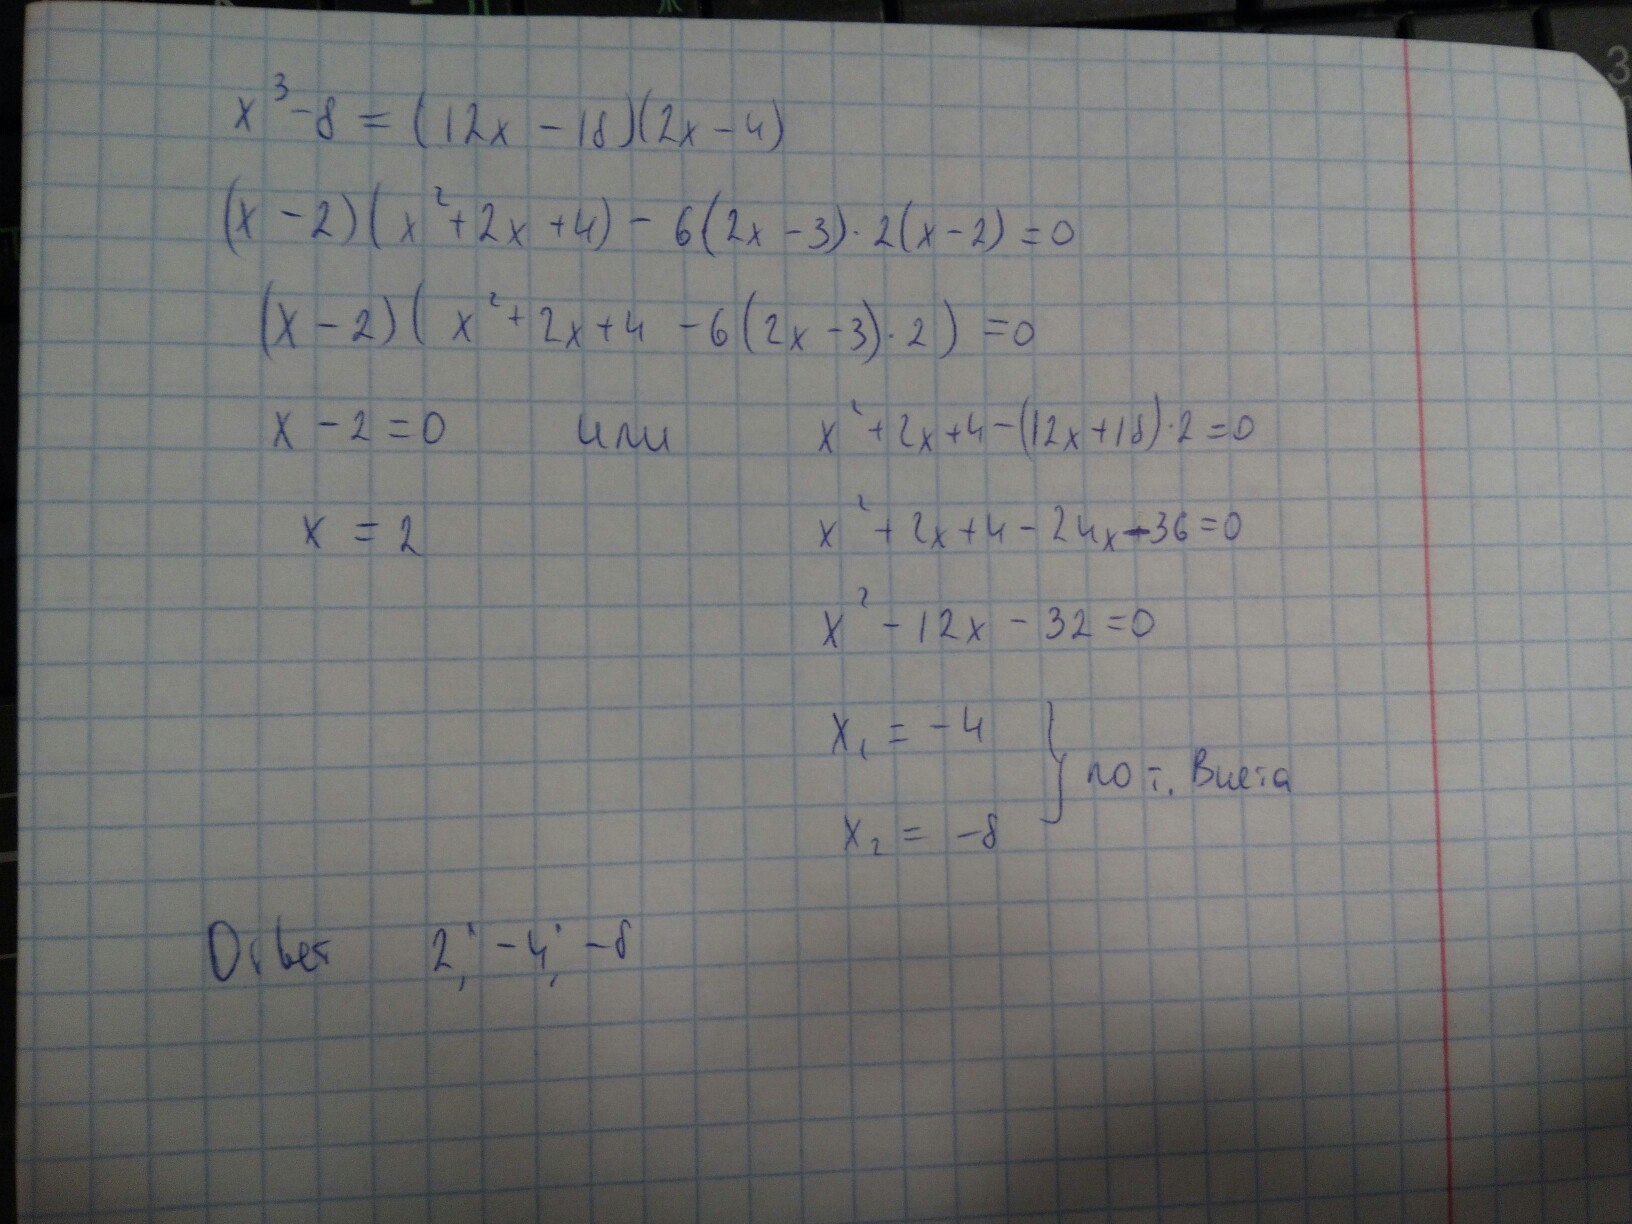 x³-8 = (12x - 18)(2x - 4)
(x - 2)(x²+2x+4) - 6(2x - 3)·2(x-2) = 0
(x - 2)(x²+2x+4 - 6(2x - 3)·2) = 0
x - 2 = 0 или x²+2x+4-(12x+18)·2 = 0
x = 2 x²+2x+4-24x-36=0
x² - 12x - 32 = 0
x₁ = -4
x₂ = -8 } по т. Виета
Ответ 2; -4; -8